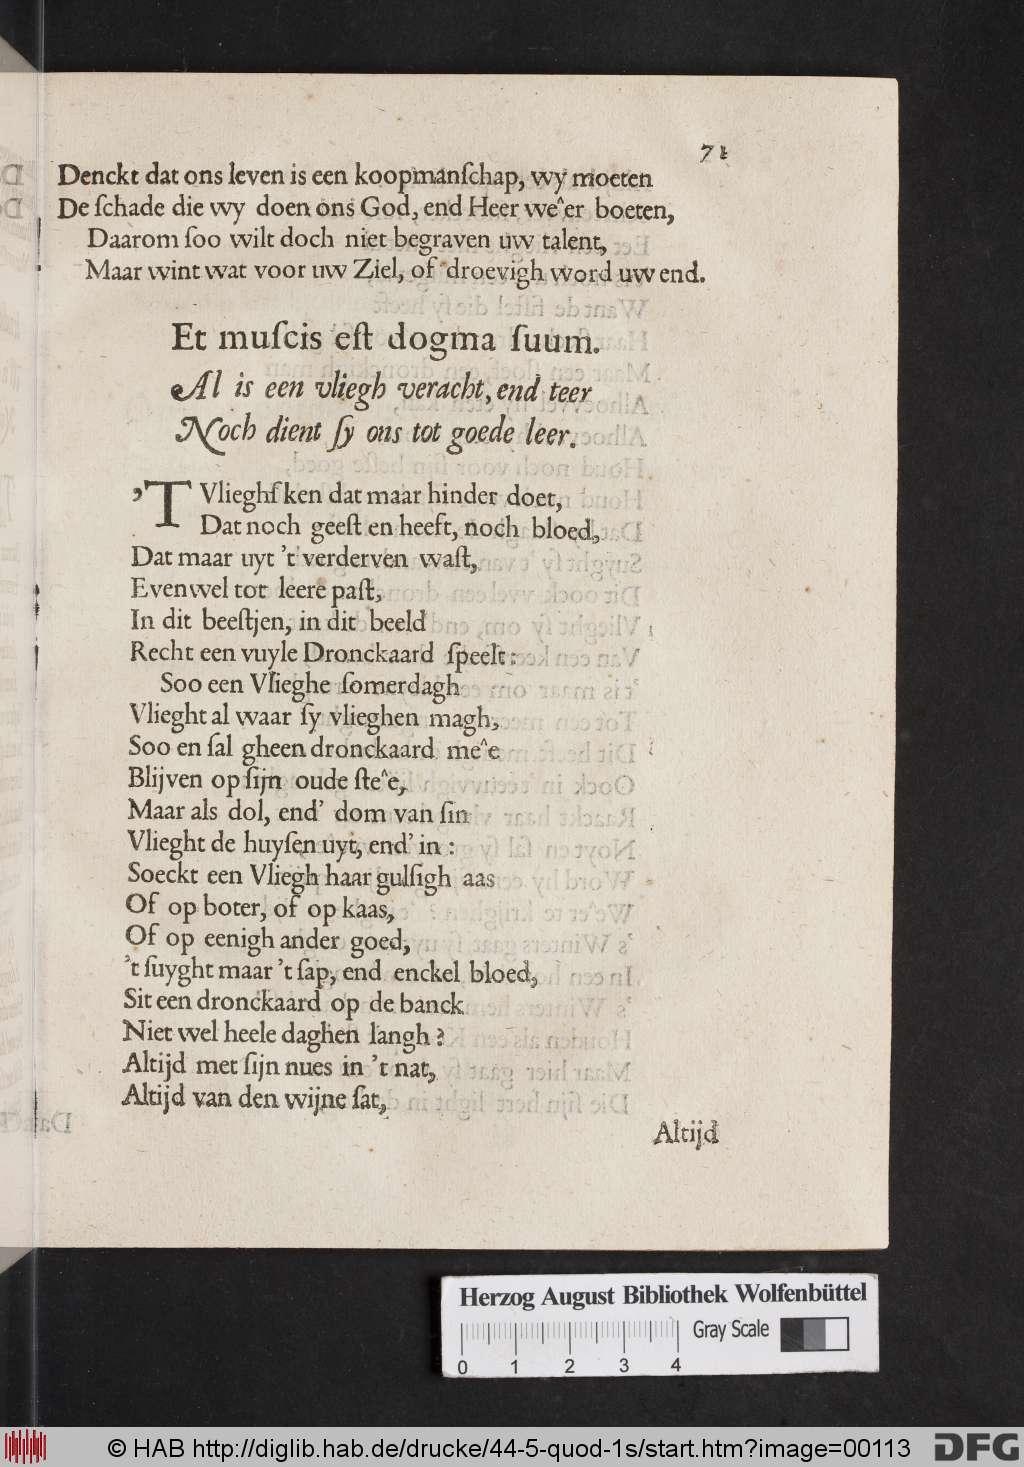 71
Denckt dat ons leven is een koopmanſchap, wy moeten
De ſchade die wy doen ons God, end Heer we^er boeten,
Daarom ſoo wilt doch niet begraven uw talent,
Maar wint wat voor uw Ziel, of droevigh word uw end.
Et muſcis eſt dogma ſuum.
Al is een vliegh veracht, end teer
Noch dient ſy ons tot goede leer.
'T Vlieghſken dat maar hinder doet,
Dat noch geeſt en heeft, noch bloed,
Dat maar uyt 't verderven waſt,
Evenwel tot leere paſt,
In dit beeſtjen, in dit beeld
Recht een vuyle Dronckaard ſpeelt:
Soo een Vlieghe ſomerdagh
Vlieght al waar ſy vlieghen magh,
Soo en ſal gheen dronckaard me^e
Blijven op ſijn oude ſte^e,
Maar als dol, end' dom van ſin
Vlieght de huyſen uyt, end' in:
Soeckt een Vliegh haar gulſigh aas
Of op boter, of op kaas,
Of op eenigh ander goed,
't ſuyght maar 't ſap, end enckel bloed,
Sit een dronckaard op de banck
Niet wel heele daghen langh?
Altijd met ſijn nues in 't nat,
Altijd van den wijne ſat,
Altijd
Herzog August Bibliothek Wolfenbüttel
Gray Scale
0 1 2 3 4
© HAB http://diglib.hab.de/drucke/44-5-quod-1s/start.htm?image=00113
DFG